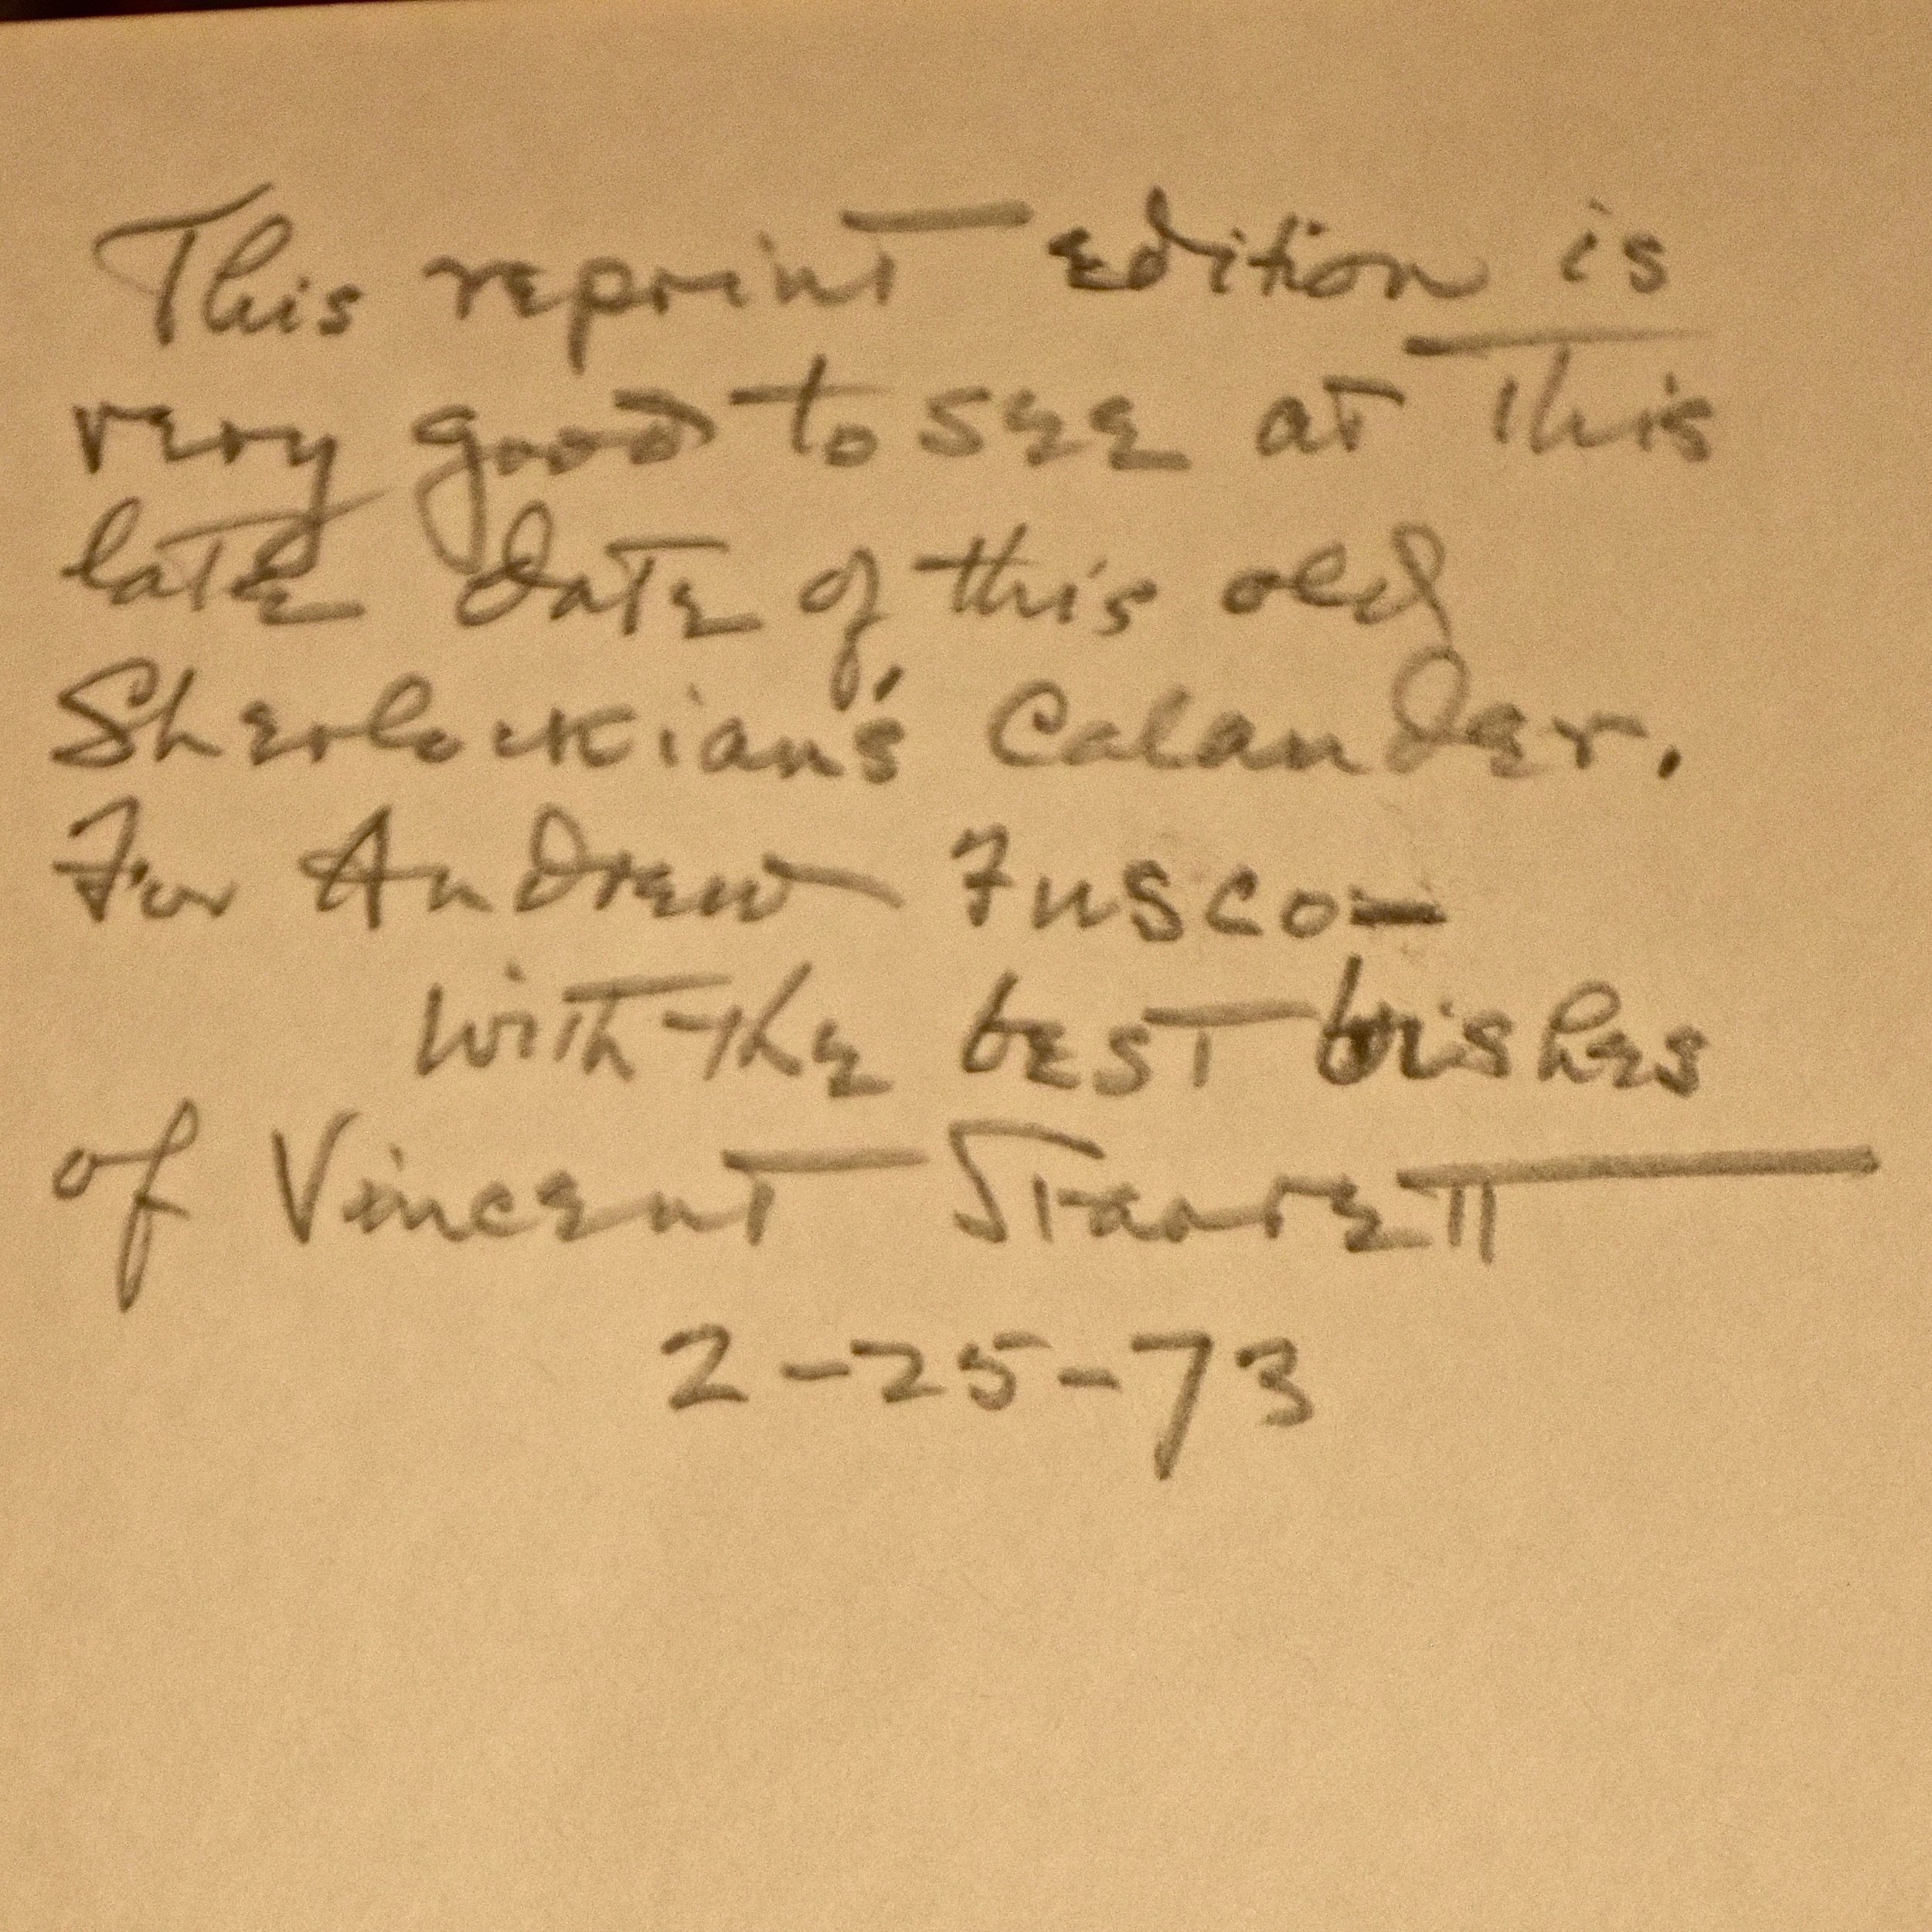 This reprint edition is
very good to see at this
late date of this old
Sherlockian's Calander.
For Andrew Fusco—
with the best wishes
of Vincent Starrett
2-25-73